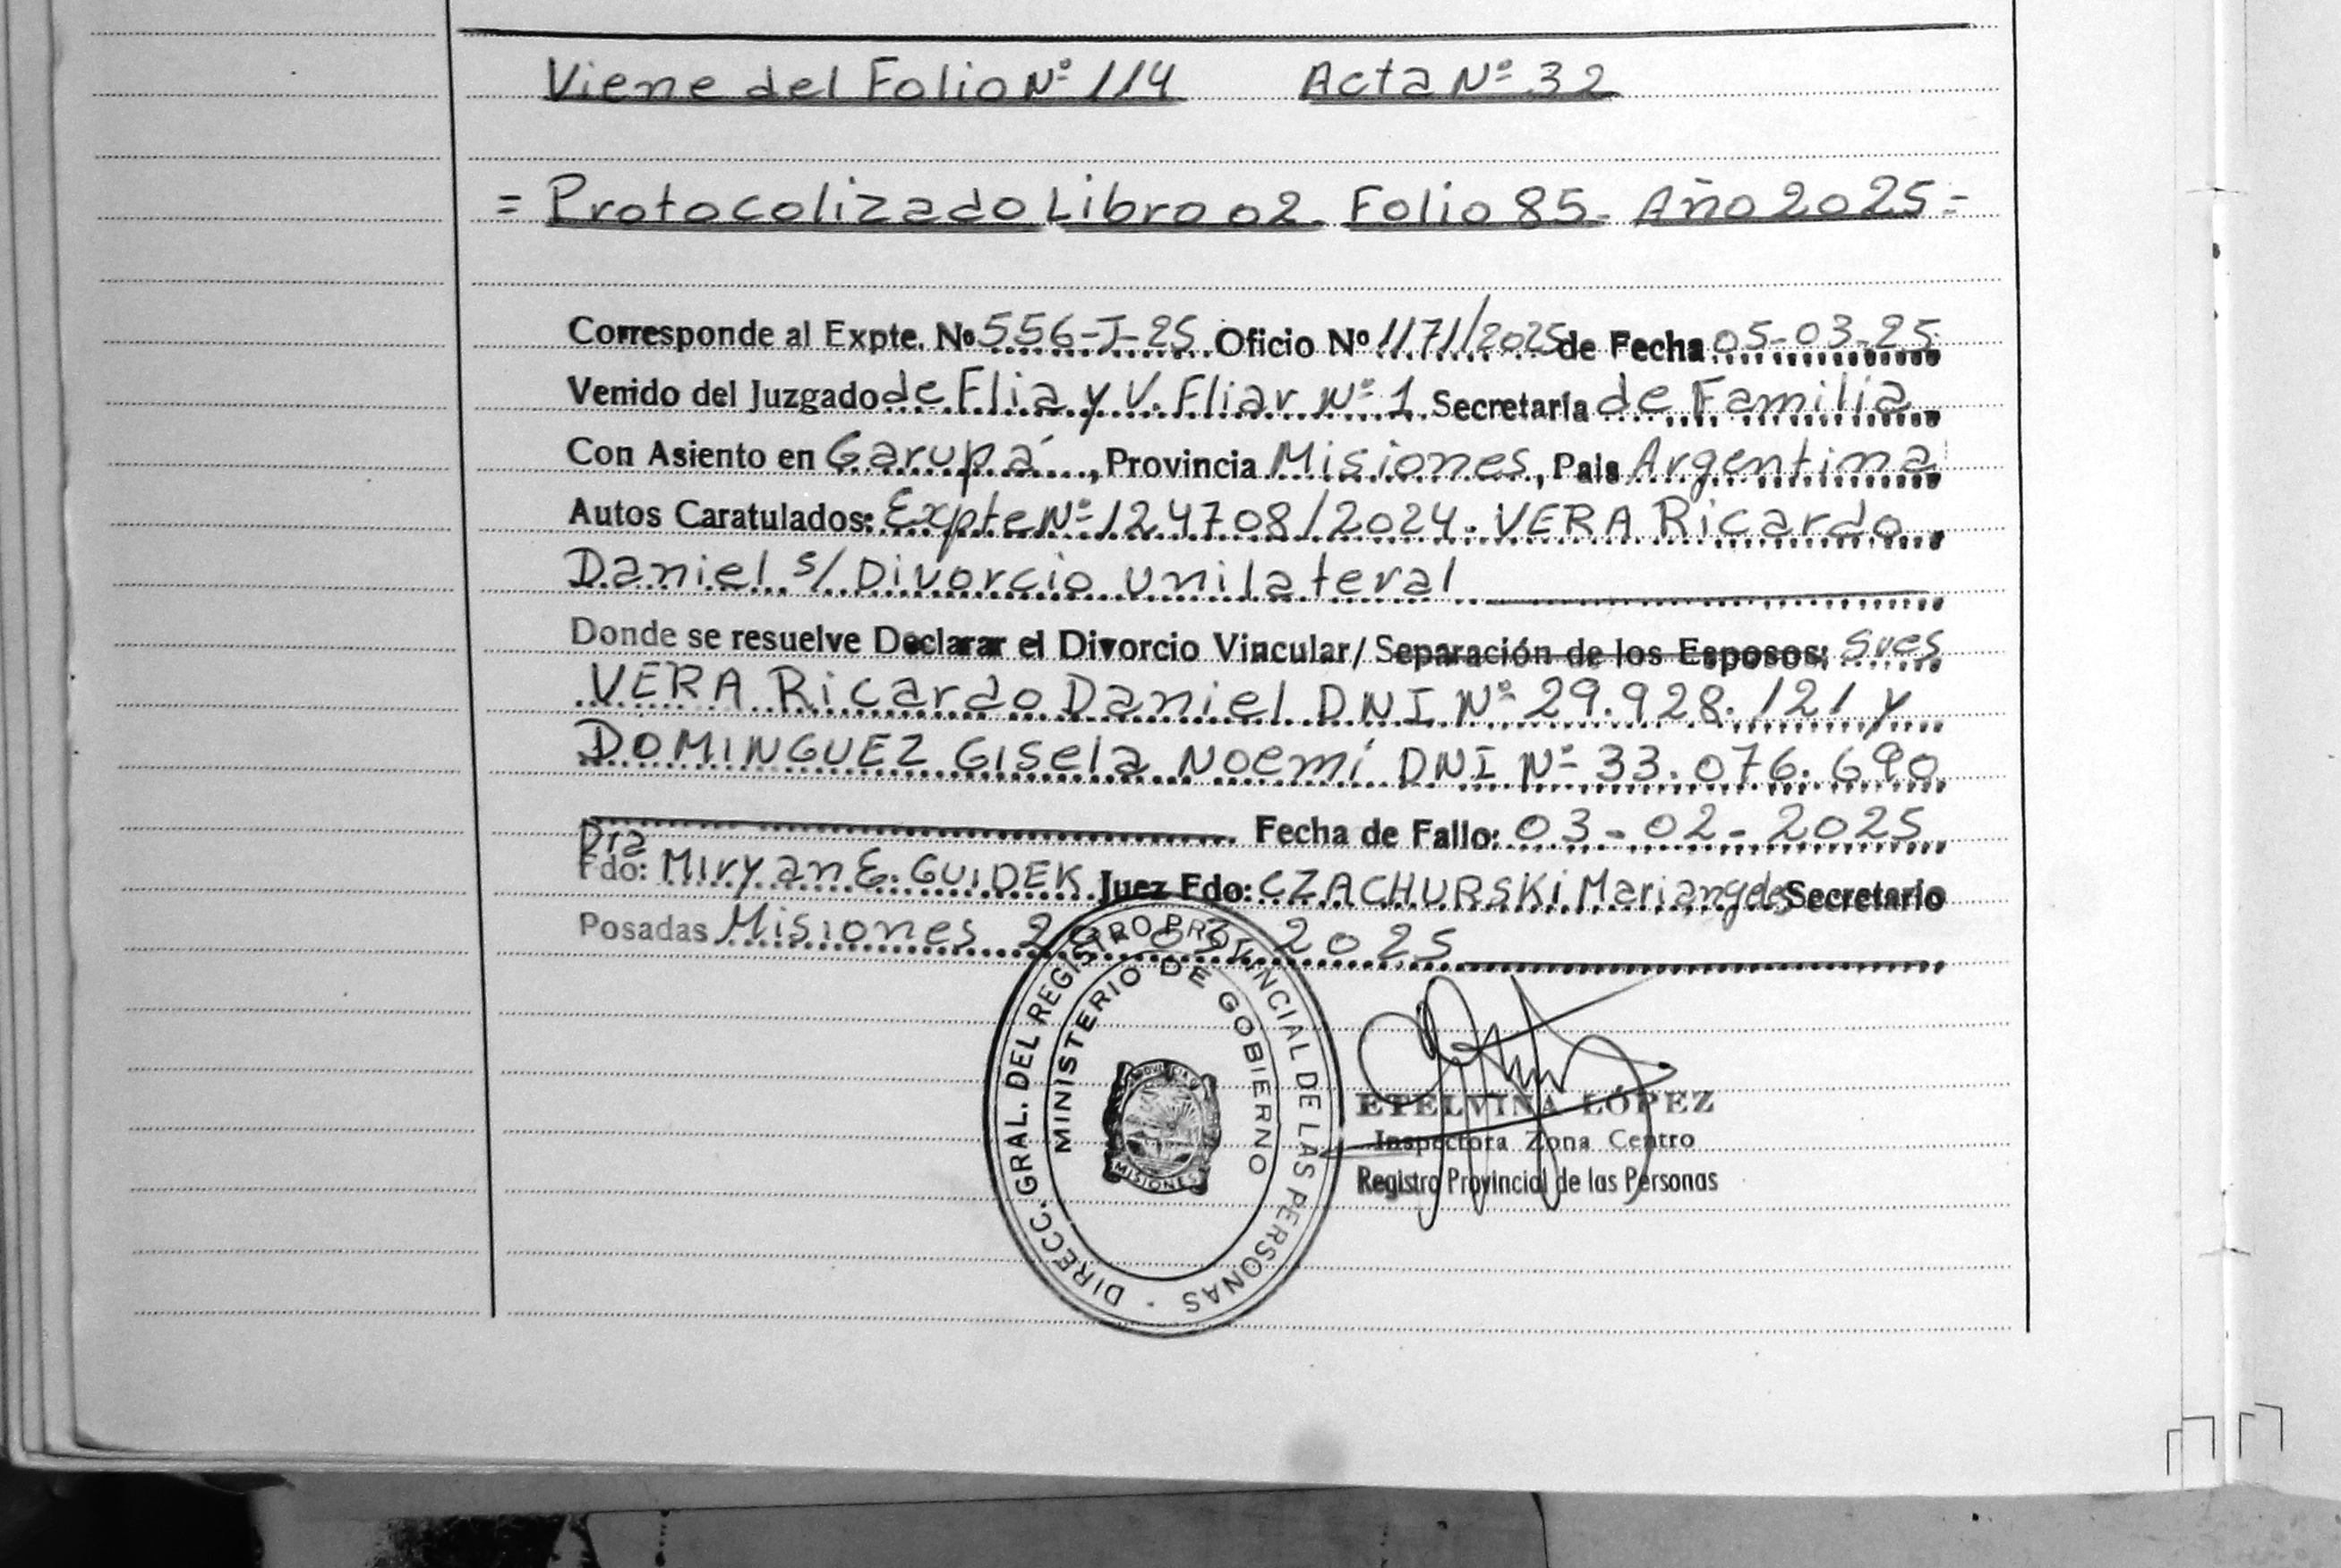 Viene del Folio Nº 114 Acta Nº 32
= Protocolizado Libro 02- Folio 85- Año 2025 =
Corresponde al Expte. Nº 556-J-25 Oficio Nº 1171/2025 de Fecha 05-03-25
Venido del Juzgado de Flia y V. Fliar Nº 1 Secretaría de Familia
Con Asiento en Garupá, Provincia Misiones, País Argentina
Autos Caratulados: Expte Nº 124708/2024. VERA Ricardo
Daniel s/ Divorcio Unilateral
Donde se resuelve Declarar el Divorcio Vincular/ Separación de los Esposos: Sres
VERA Ricardo Daniel DNI Nº 29.928.121 y
DOMINGUEZ Gisela Noemí DNI Nº 33.076.690
Fecha de Fallo: 03-02-2025
Dra
Fdo: Miryan E. GUIDEK Juez Fdo: CZACHURSKI Mariangeles Secretario
Posadas Misiones 03 2025
DIRECC. GRAL. DEL REGISTRO PROVINCIAL DE LAS PERSONAS
MINISTERIO DE GOBIERNO
PROVINCIA
MISIONES
ETELVINA LÓPEZ
Inspectora Zona Centro
Registro Provincial de las Personas